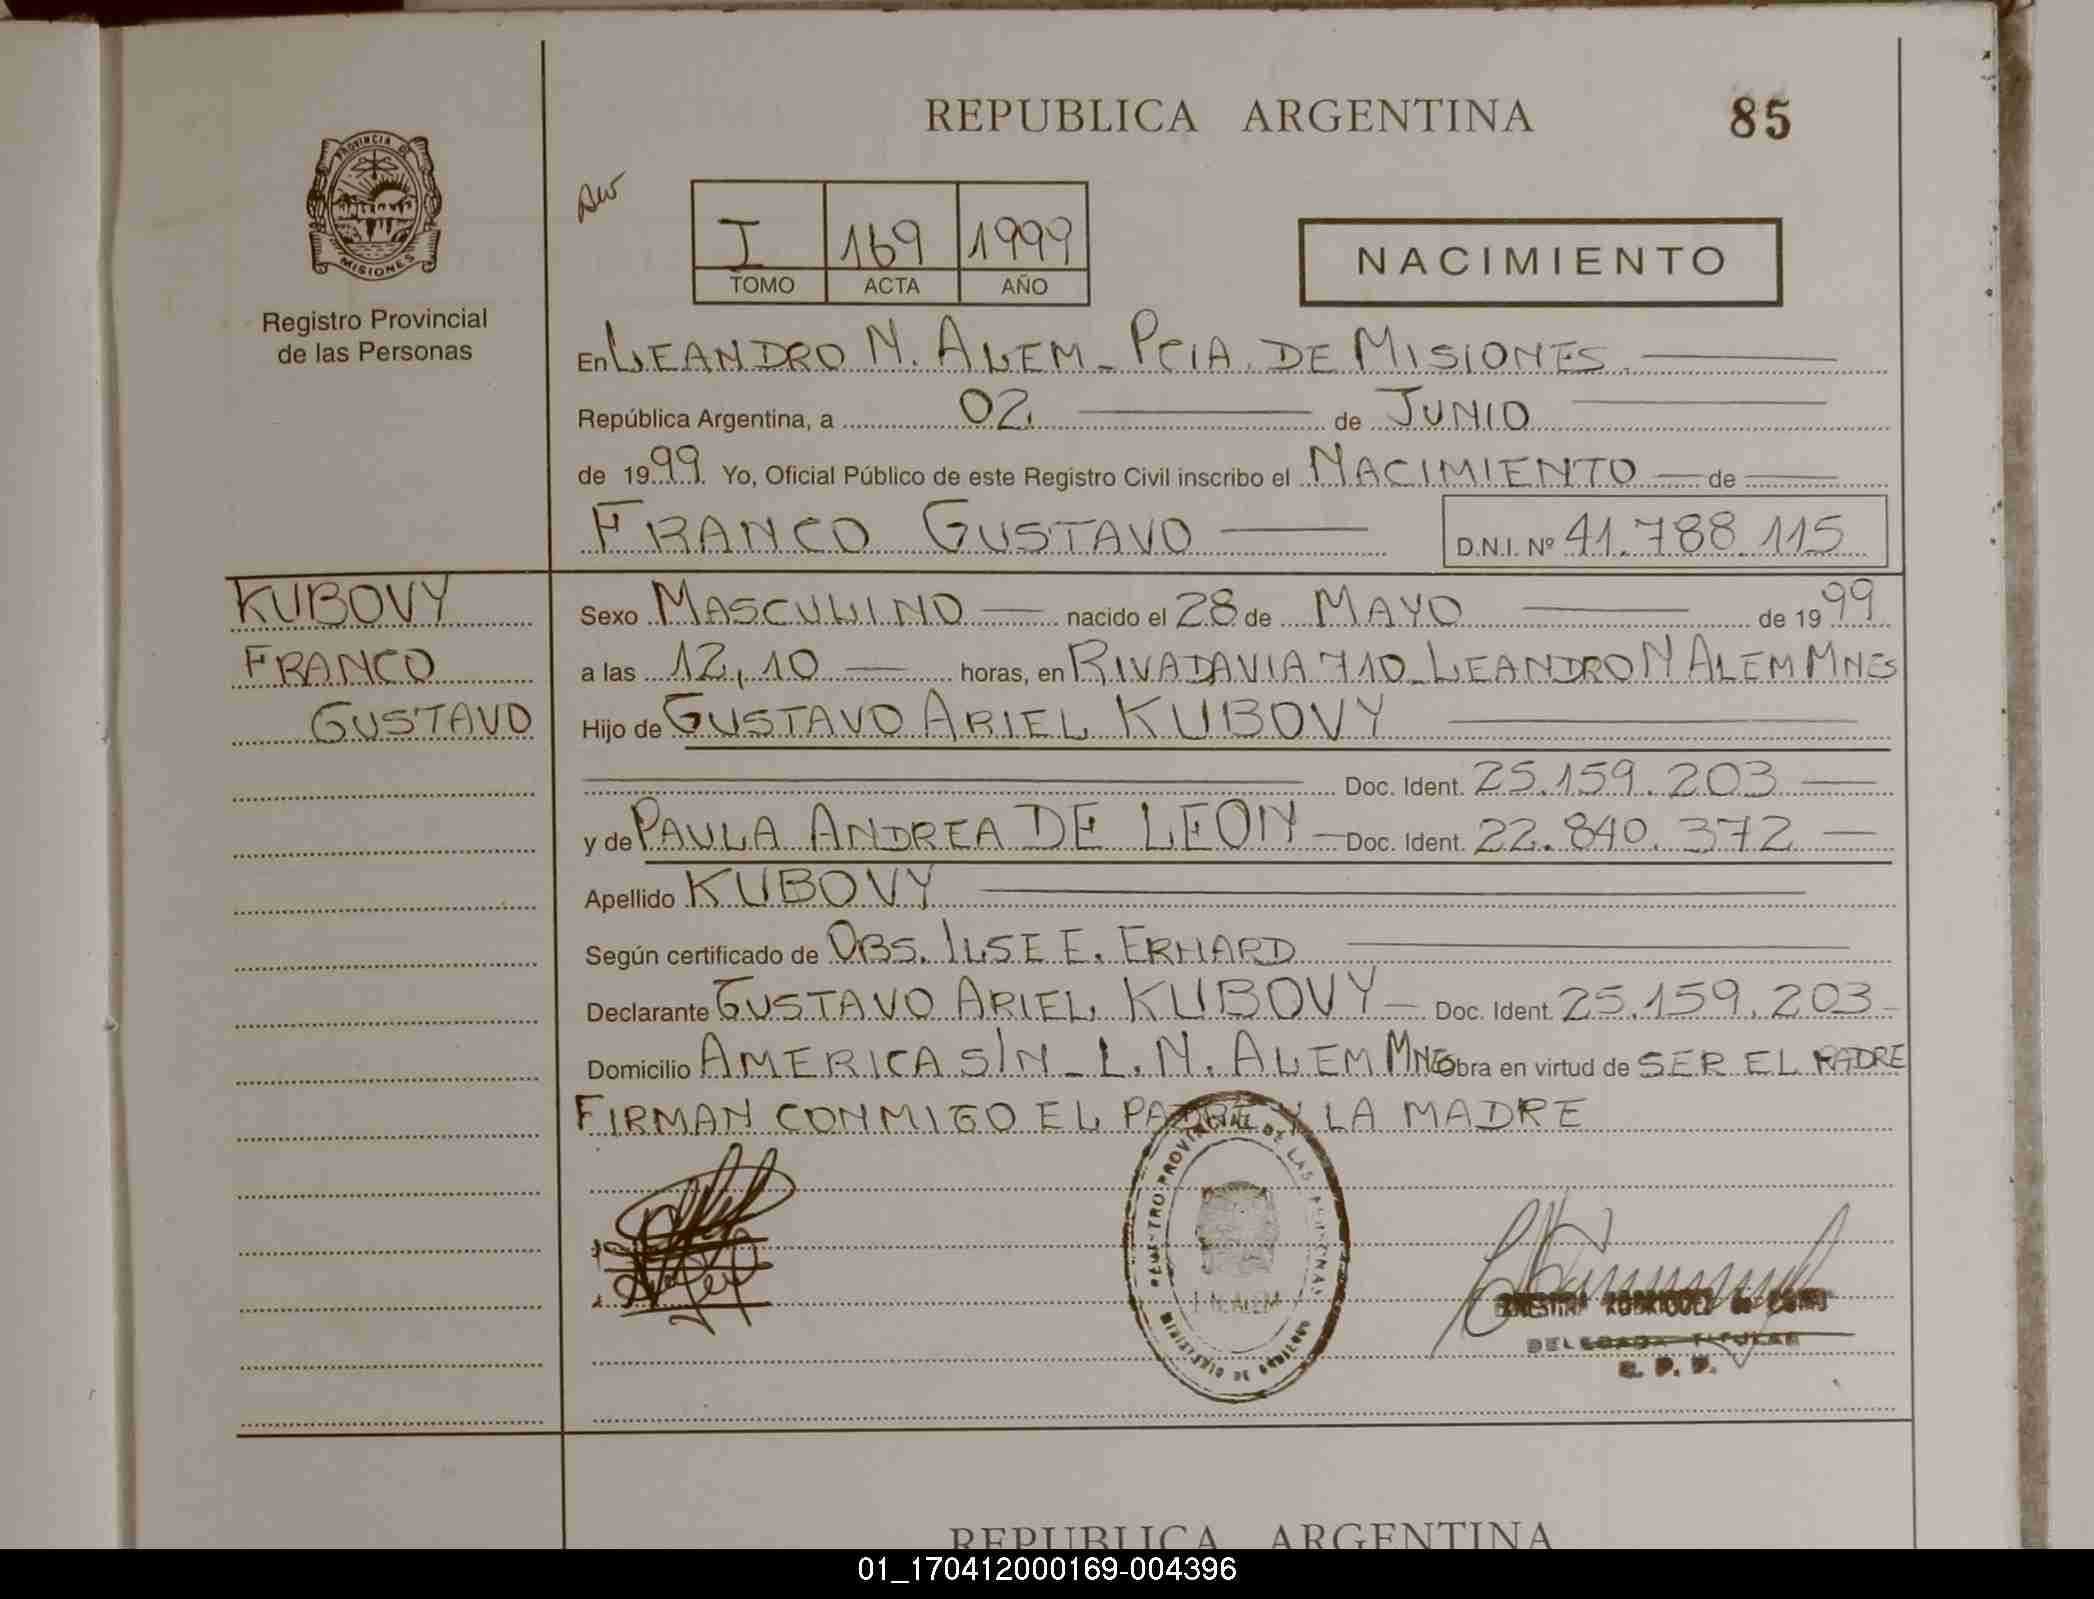 REPUBLICA ARGENTINA
85
PROVINCIA DE
MISIONES
Registro Provincial
de las Personas
I 169 1999
TOMO ACTA AÑO
NACIMIENTO
En LEANDRO N. ALEM - PCIA. DE MISIONES
República Argentina, a 02. de JUNIO
de 1999. Yo, Oficial Público de este Registro Civil inscribo el NACIMIENTO de
FRANCO GUSTAVO D.N.I. Nº 41.788.115
KUBOVY
FRANCO
GUSTAVO
Sexo MASCULINO nacido el 28 de MAYO de 1999
a las 12,10 horas, en RIVADAVIA 710 - LEANDRO N ALEM MNES
Hijo de GUSTAVO ARIEL KUBOVY
Doc. Ident. 25.159.203
y de PAULA ANDREA DE LEON Doc. Ident. 22.840.372
Apellido KUBOVY
Según certificado de OBS. ILSE E. ERHARD
Declarante GUSTAVO ARIEL KUBOVY Doc. Ident. 25.159.203
Domicilio AMERICA S/N - L.N. ALEM MNES Obra en virtud de SER EL PADRE
FIRMAN CONMIGO EL PADRE Y LA MADRE
REGISTRO PROVINCIAL DE LAS PERSONAS
L.N. ALEM
RODRIGUEZ de
DELEGADA TITULAR
R. P. P.
REPUBLICA ARGENTINA
01_170412000169-004396